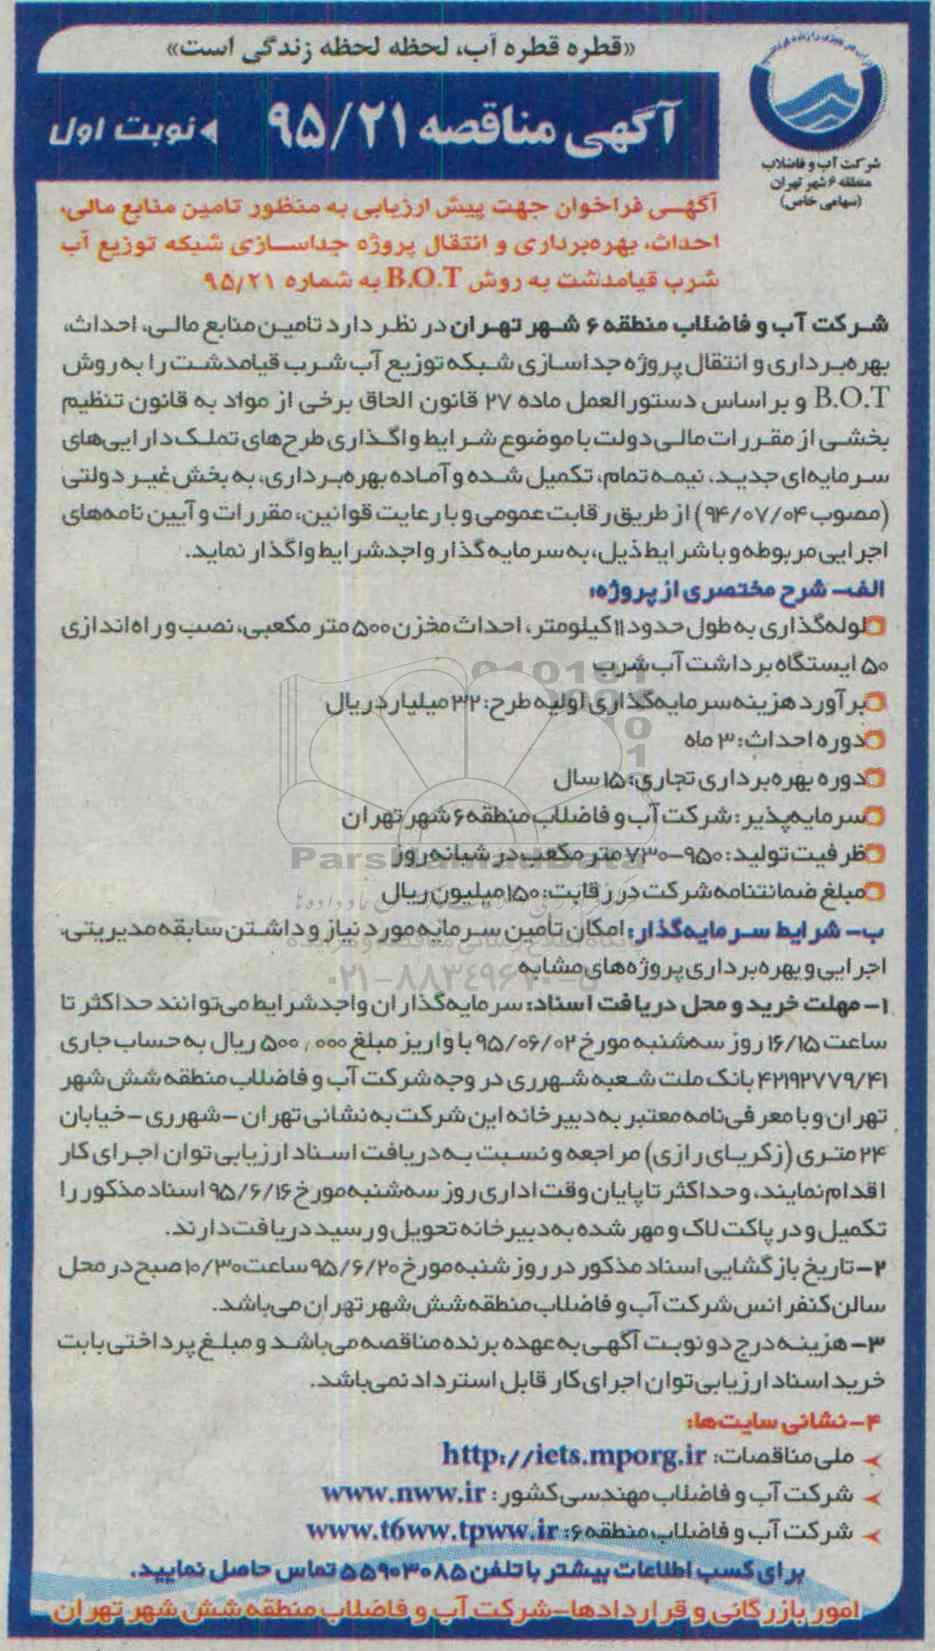 «قطره قطره آب، لحظه لحظه زندگی است»
شرکت آب و فاضلاب
منطقه ۶ شهر تهران
(سهامی خاص)
آگهی مناقصه ۹۵/۲۱ نوبت اول
آگهی فراخوان جهت پیش ارزیابی به منظور تامین منابع مالی،
احداث، بهره‌برداری و انتقال پروژه جداسازی شبکه توزیع آب
شرب قیامدشت به روش B.O.T به شماره ۹۵/۲۱
شرکت آب و فاضلاب منطقه ۶ شهر تهران در نظر دارد تامین منابع مالی، احداث،
بهره‌برداری و انتقال پروژه جداسازی شبکه توزیع آب شرب قیامدشت را به روش
B.O.T و براساس دستورالعمل ماده ۲۷ قانون الحاق برخی از مواد به قانون تنظیم
بخشی از مقررات مالی دولت با موضوع شرایط واگذاری طرح‌های تملک دارایی‌های
سرمایه‌ای جدید، نیمه تمام، تکمیل شده و آماده بهره‌برداری، به بخش غیر دولتی
(مصوب ۹۴/۰۷/۰۴) از طریق رقابت عمومی و با رعایت قوانین، مقررات و آیین نامه‌های
اجرایی مربوطه و با شرایط ذیل، به سرمایه گذار واجد شرایط واگذار نماید.
الف- شرح مختصری از پروژه:
لوله‌گذاری به طول حدود ۱۱ کیلومتر، احداث مخزن ۵۰۰ متر مکعبی، نصب و راه اندازی
۵۰ ایستگاه برداشت آب شرب
برآورد هزینه سرمایه‌گذاری اولیه طرح: ۳۲ میلیارد ریال
دوره احداث: ۳ ماه
دوره بهره‌برداری تجاری: ۱۵ سال
سرمایه‌پذیر: شرکت آب و فاضلاب منطقه ۶ شهر تهران
ظرفیت تولید: ۹۵۰-۷۳۰ متر مکعب در شبانه‌روز
مبلغ ضمانتنامه شرکت در رقابت: ۱۵۰ میلیون ریال
ParsNamadData
پایگاه اطلاع رسانی مناقصه و مزایده
۰۲۱-۸۸۳۴۹۶۷۰-۵
ب- شرایط سرمایه‌گذار: امکان تأمین سرمایه مورد نیاز و داشتن سابقه مدیریتی،
اجرایی و بهره‌برداری پروژه‌های مشابه
۱- مهلت خرید و محل دریافت اسناد: سرمایه‌گذاران واجد شرایط می‌توانند حداکثر تا
ساعت ۱۶/۱۵ روز سه‌شنبه مورخ ۹۵/۰۶/۰۲ با واریز مبلغ ۵۰۰,۰۰۰ ریال به حساب جاری
۴۲۱۹۲۷۷۹/۴۱ بانک ملت شعبه شهرری در وجه شرکت آب و فاضلاب منطقه شش شهر
تهران و با معرفی‌نامه معتبر به دبیرخانه این شرکت به نشانی تهران - شهرری - خیابان
۲۴ متری (زکریای رازی) مراجعه و نسبت به دریافت اسناد ارزیابی توان اجرای کار
اقدام نمایند، و حداکثر تا پایان وقت اداری روز سه‌شنبه مورخ ۹۵/۶/۱۶ اسناد مذکور را
تکمیل و در پاکت لاک و مهر شده به دبیرخانه تحویل و رسید دریافت دارند.
۲- تاریخ بازگشایی اسناد مذکور در روز شنبه مورخ ۹۵/۶/۲۰ ساعت ۱۰/۳۰ صبح در محل
سالن کنفرانس شرکت آب و فاضلاب منطقه شش شهر تهران می‌باشد.
۳- هزینه درج دو نوبت آگهی به عهده برنده مناقصه می‌باشد و مبلغ پرداختی بابت
خرید اسناد ارزیابی توان اجرای کار قابل استرداد نمی‌باشد.
۴- نشانی سایت‌ها:
ملی مناقصات: http://iets.mporg.ir
شرکت آب و فاضلاب مهندسی کشور: www.nww.ir
شرکت آب و فاضلاب منطقه ۶: www.t6ww.tpww.ir
برای کسب اطلاعات بیشتر با تلفن ۵۵۹۰۳۰۸۵ تماس حاصل نمایید.
امور بازرگانی و قراردادها-شرکت آب و فاضلاب منطقه شش شهر تهران